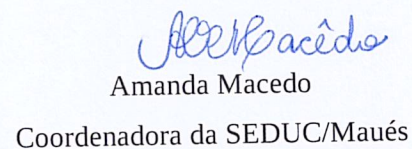 Amanda Macedo
Coordenadora da SEDUC/Maués